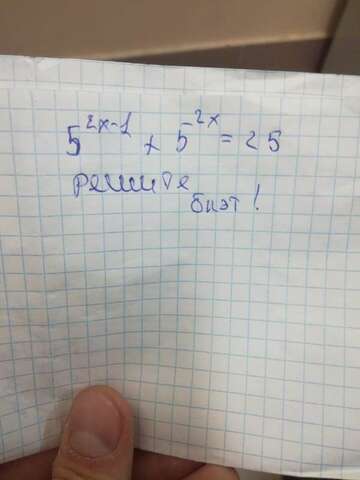 5^{2x-1} + 5^{2x} = 25
решите
биэт!